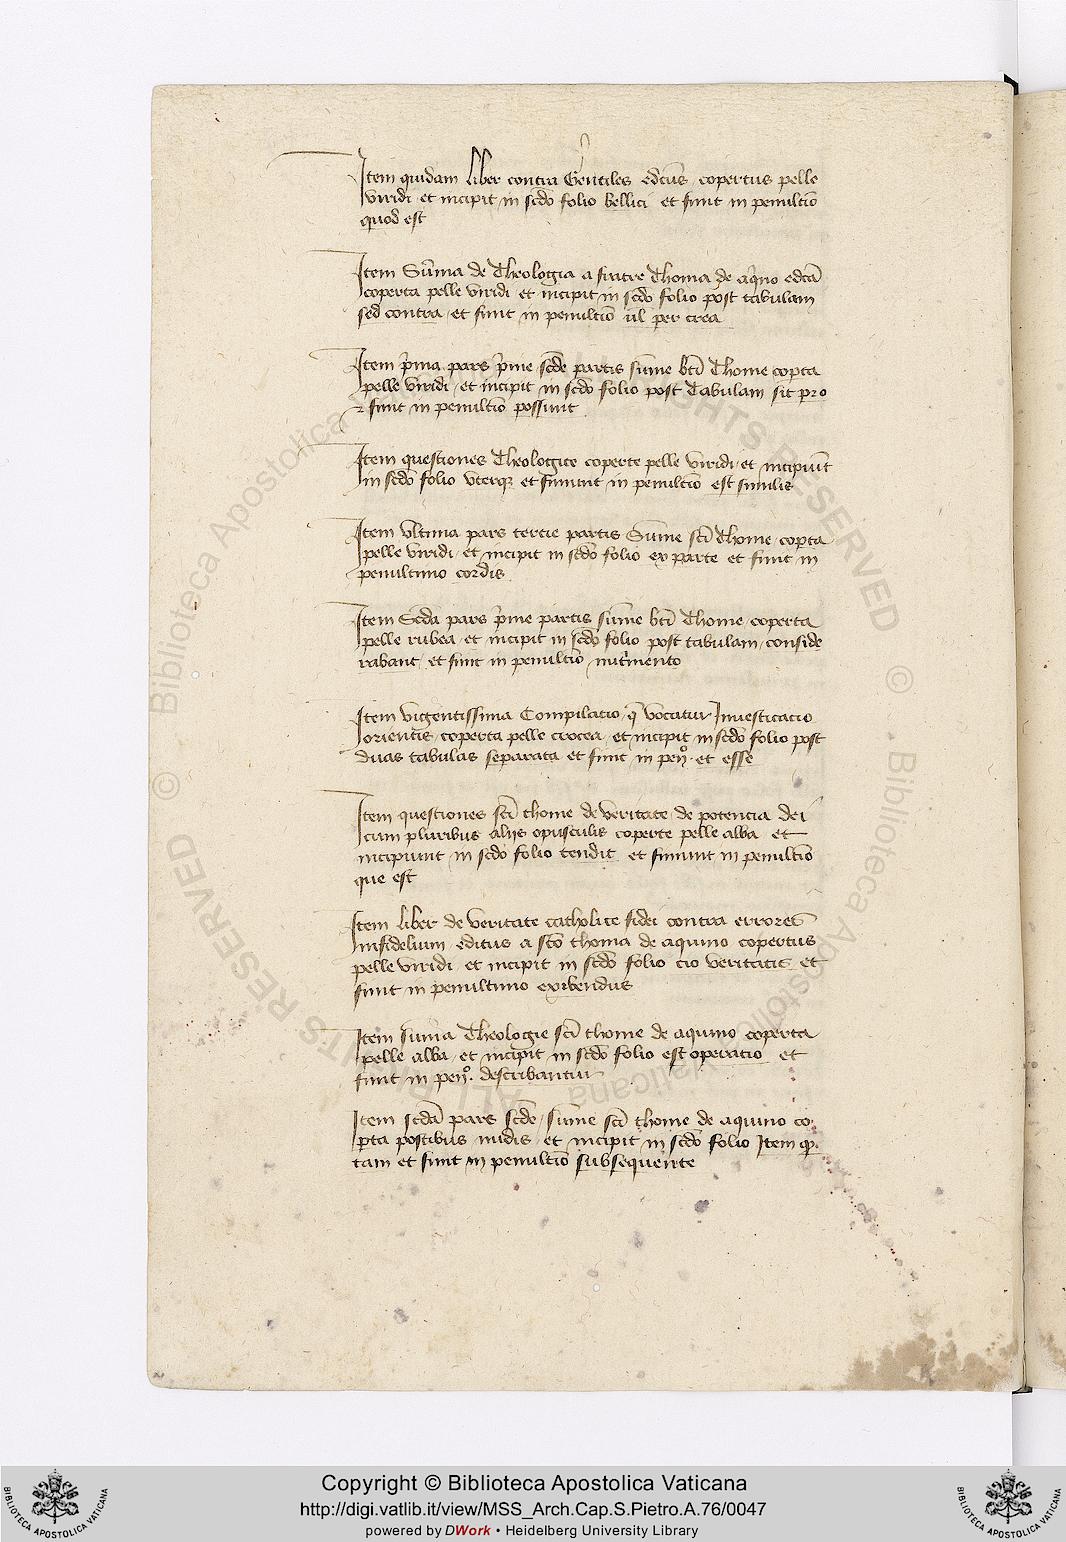 Item quidam liber contra Gentiles edcūs copertus pelle
viridi et incipit in scdo folio bellici et finit in penultīo
quod est
Item Sūma de Theologia a fratre Thoma de aq̄no edcā
coperta pelle viridi et incipit in scdo folio post tabulam
sed contra et finit in penultīo ūl per crea
Item p̄ma pars p̄me scde partis sūme btī Thome cop̄ta
pelle viridi et incipit in scdo folio post Tabulam sit pro
⁊ finit in penultīo possunt
Item questiones Theologice coperte pelle viridi et incipiūt
in scdo folio vterqꝫ et finiunt in penultīo est similis
Item vltima pars tercie partis Sūme scī Thome cop̄ta
pelle viridi et incipit in scdo folio ex parte et finit in
penultimo cordis
Item Scda pars p̄me partis sūme btī Thome coperta
pelle rubea et incipit in scdo folio post tabulam conside
rabant et finit in penultīo nut̄mento
Item vigentissima Compilatio q̄ vocatur Inuesticacio
orientis coperta pelle crocea et incipit in scdo folio post
duas tabulas separata et finit in peño et esse
Item questiones scī thome de veritate de potencia dei
cum pluribus alijs opusculis coperte pelle alba et
incipiunt in scdo folio tendit et finiunt in penultīo
que est
Item liber de veritate catholice fidei contra errores
infidelium editus a scō thoma de aquino copertus
pelle viridi et incipit in scdo folio cio veritatis et
finit in penultimo exibendus
Item sūma Theologie scī thome de aquino coperta
pelle alba et incipit in scdo folio est operatio et
finit in peño describantur
Item scdā pars scde sūme scī thome de aquino co
p̄ta postibus nudis et incipit in scdo folio Item
tam et finit in penultīo subsequente
© Biblioteca Apostolica Vaticana ALL RIGHTS RESERVED
© Biblioteca Apostolica Vaticana ALL RIGHTS RESERVED
BIBLIOTECA APOSTOLICA VATICANA
Copyright © Biblioteca Apostolica Vaticana
http://digi.vatlib.it/view/MSS_Arch.Cap.S.Pietro.A.76/0047
powered by DWork • Heidelberg University Library
BIBLIOTECA APOSTOLICA VATICANA